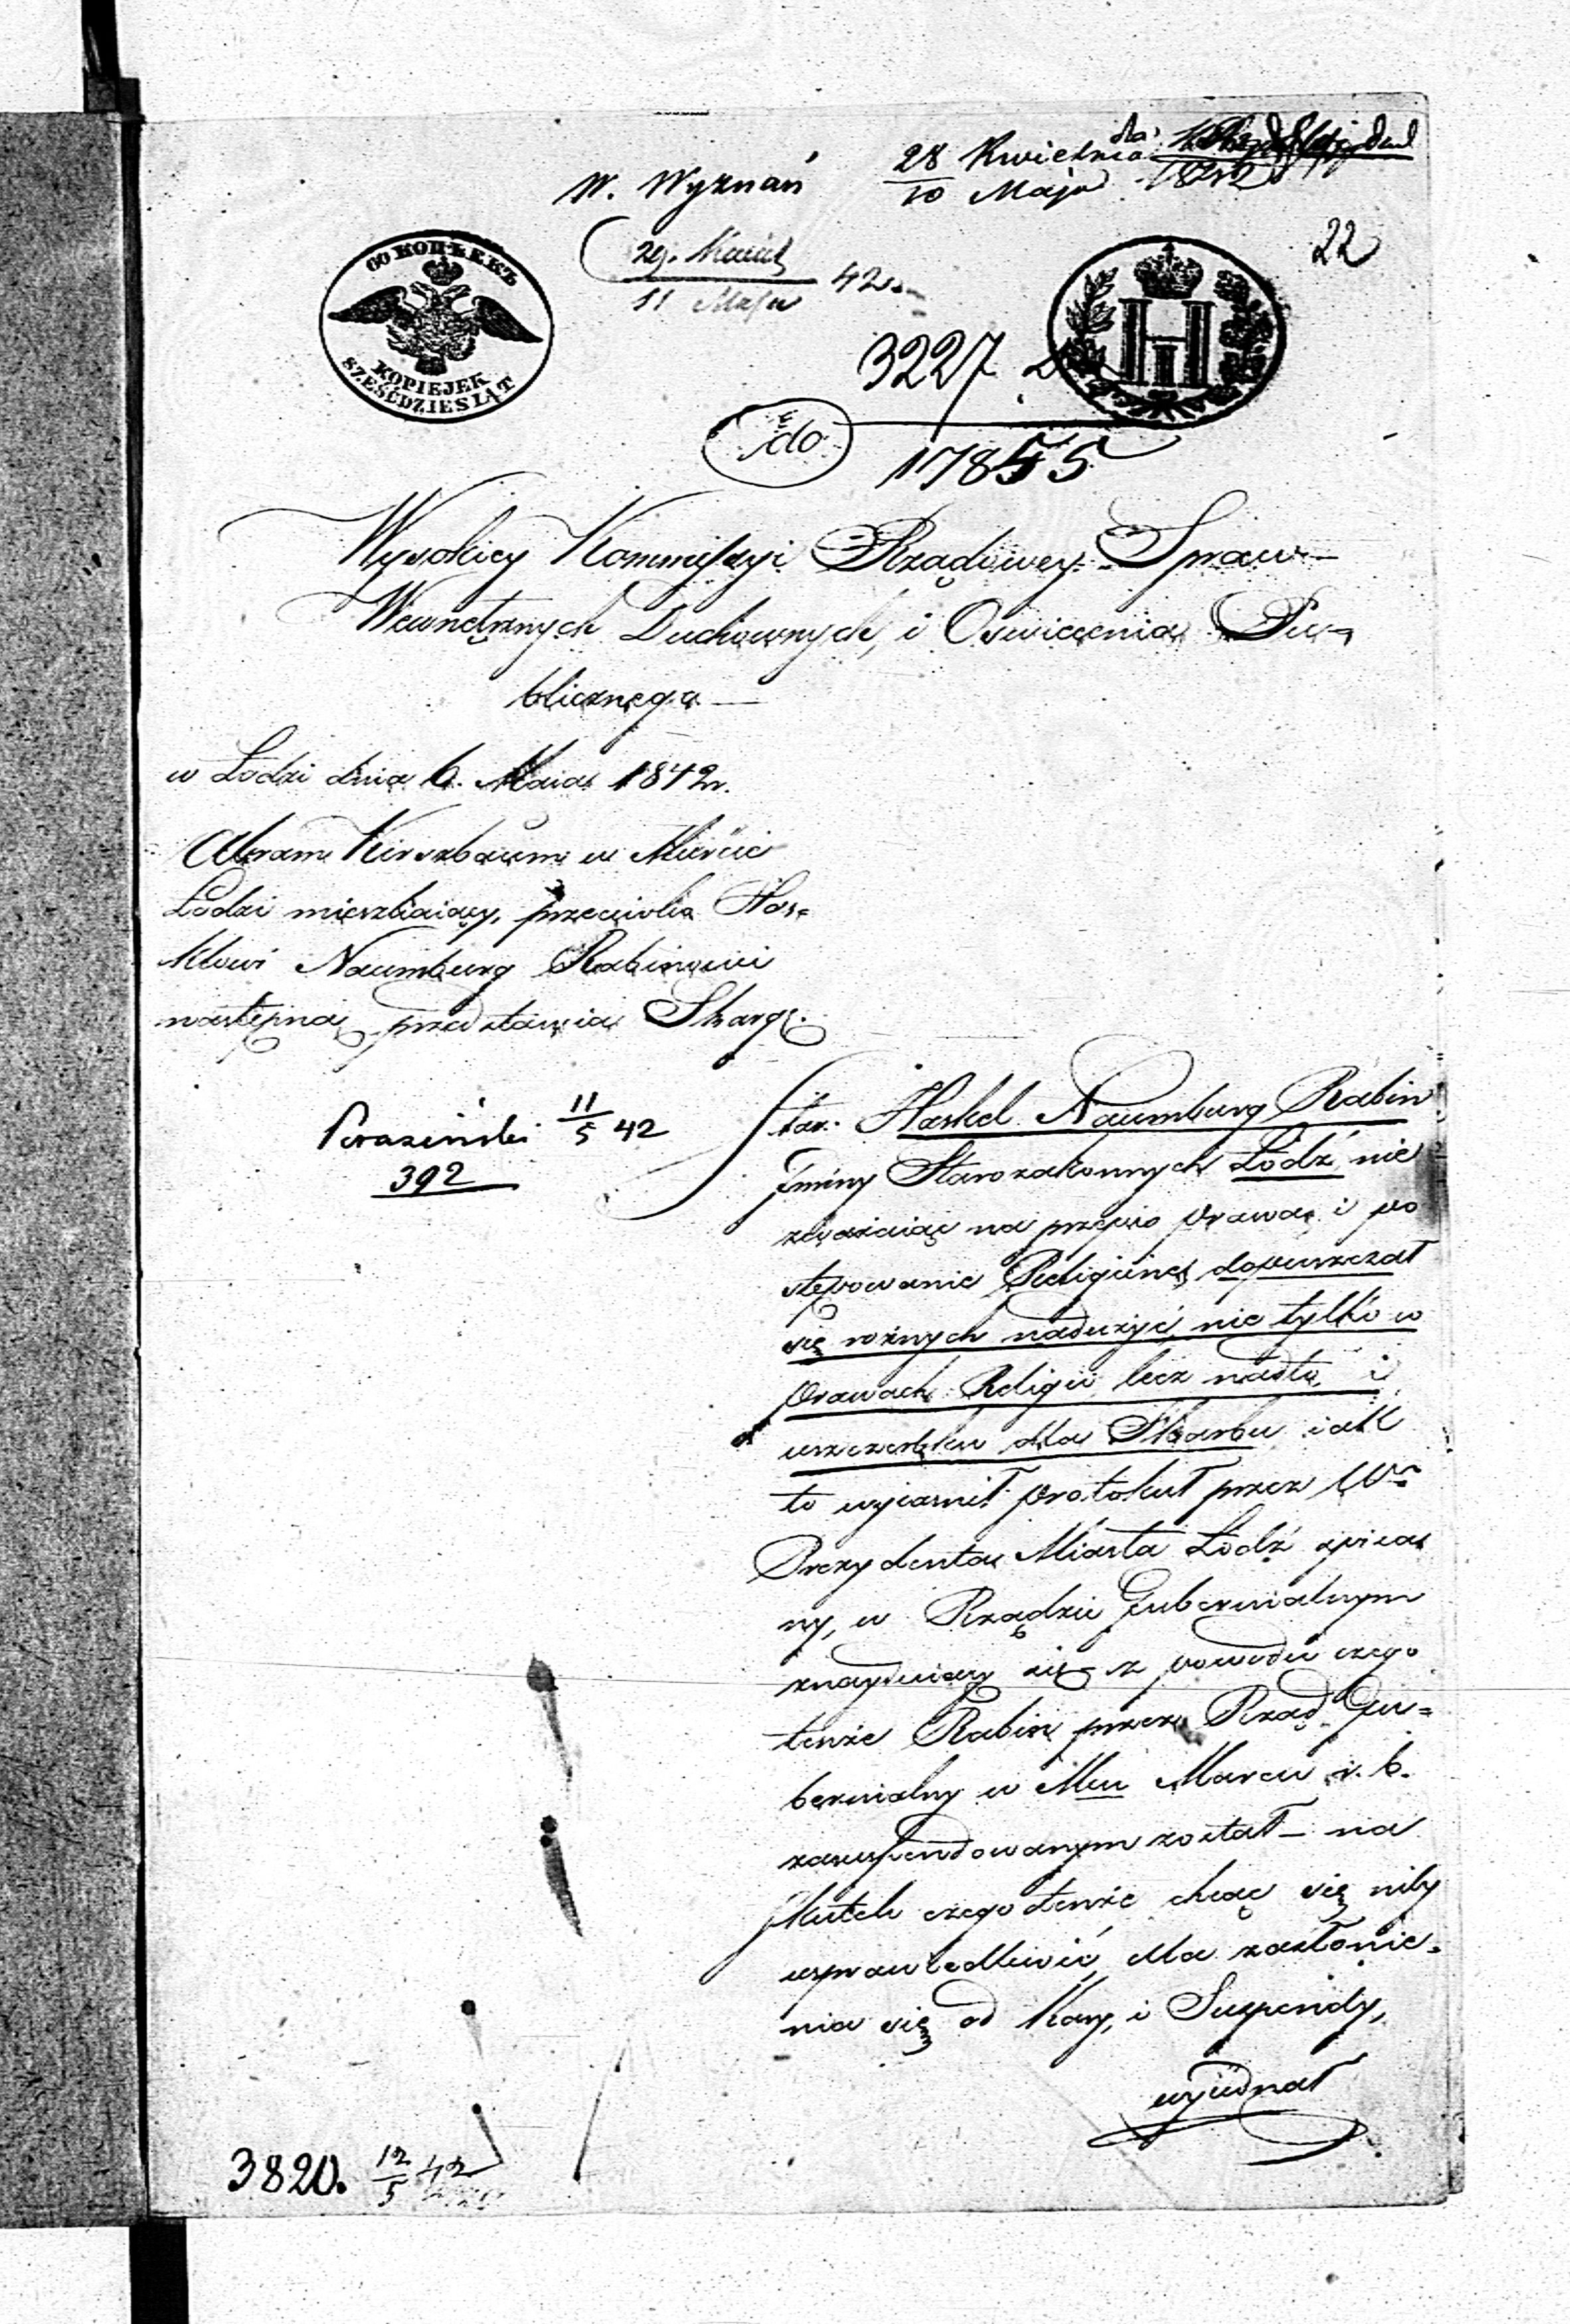 W. Wyznań
28 Kwietnia
10 Maja 1842
22
29.
11 Maja 42
60 КОПѢЕКЪ
KOPIEJEK
SZEŚĆDZIESIĄT
3227
do
17855
Wysokiey Kommissyi Rządowey Spraw
Wewnętrznych Duchownych, i Oswiecenia Pu-
blicznego —
w Lodzi dnia 6. Maia 1842 r.
Abram Kirszbaum w Mieście
Lodzi mieszkaiący, przeciwko Has-
klowi Naumburg Rabinowi
następną przedstawia Skargę.
11/5 42
392
Star. Haskel Naumburg Rabin
Gminy Starozakonnych Łódź nie
zważaiąc na przepis prawa i po
stępowanie Religiine dopuszczał
się rożnych nadużyć, nie tylko w
prawach Religii lecz nadto, i
uszczerbku dla Skarbu iak
to wyiasnił protokuł przez W°
Prezydenta Miasta Łodź spisa
ny, w Rządzie Gubernialnym
znayduiący się z powodu czego
tenże Rabin przez Rząd Gu=
bernialny w Mcu Marcu r. b.
zasuspendowanym został — na
skutek czego tenże chcąc się niby
usprawiedliwić dla zasłonie-
nia się od Kary, i Suspendy,
wyiednał
3820. 12/5 42